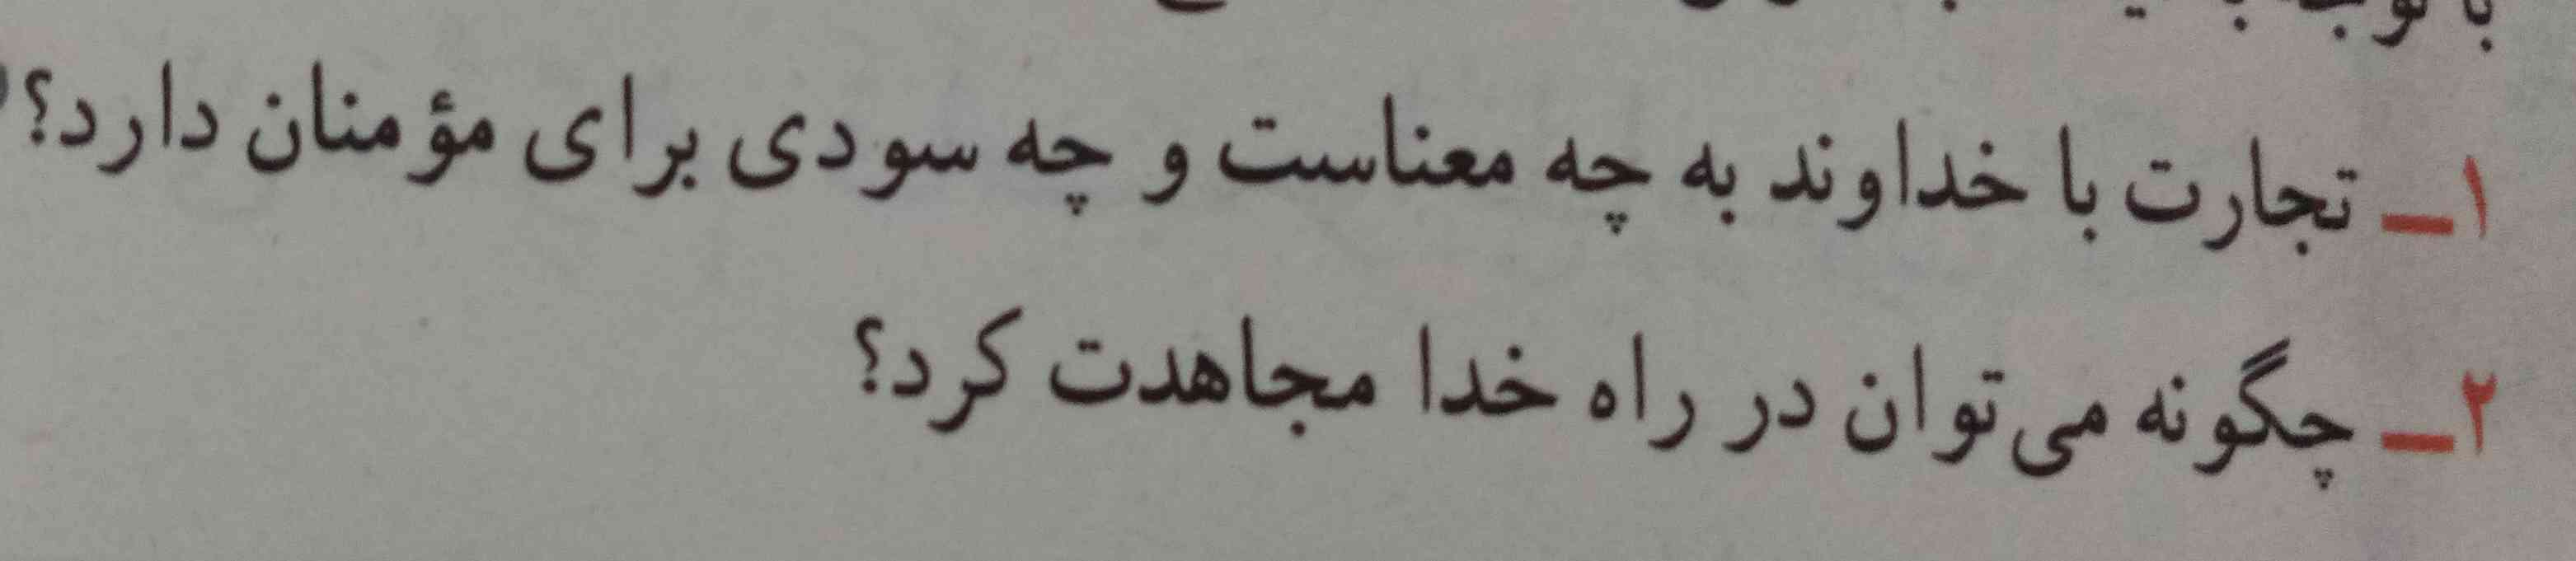 ۱ـ تجارت با خداوند به چه معناست و چه سودی برای مؤمنان دارد؟
۲ـ چگونه می‌توان در راه خدا مجاهدت کرد؟